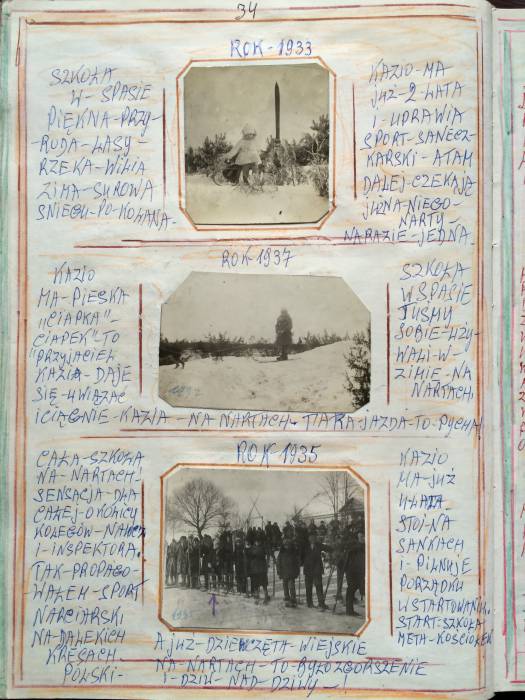 34
ROK-1933
SZKOŁA
W-SPASIE
PIĘKNA-PRZY-
-RODA-LASY-
RZEKA-WILIA
ZIMA-SUROWA
ŚNIEGU-PO-KOLANA-
KAZIO-MA
już-2-LATA
I-UPRAWIA
SPORT-SANECZ-
KARSKI-A TAM
DALEJ-CZEKAJĄ
JUŻ NA-NIEGO-
NARTY-
NARAZIE-JEDNA-
ROK-1937
KAZIO
MA-PIESKA
"CIAPKA"-
CIAPEK"TO
"PRZYJACIEL
KAZIA-DAJE
SIĘ-UWIĄZAĆ
I CIĄGNIE-KAZIA-NA NARTACH-TAKA JAZDA-TO-PYCHA!
SZKOŁA
W SPASIE
TUŚMY
SOBIE-UŻY-
WALI-W-
ZIMIE-NA
NARTACH.
1937
ROK-1935
CAŁA-SZKOŁA
NA-NARTACH!
SENSACJA-DLA
CAŁEJ-OKOLICY
KOLEGÓW-NAUCZ
I-INSPEKTORA.
TAK-PROPAGO-
WAŁEM-SPORT
NARCIARSKI
NA-DALEKICH
KRESACH
POLSKI-
KAZIO
MA-JUŻ
4 LATA
STOI-NA
SANKACH
I-PILNUJE
PORZĄDKU
W STARTOWANIU.
START-SZKOŁA
META-KOŚCIOŁEK
1935
A JUŻ-DZIEWCZĘTA-WIEJSKIE
NA-NARTACH-TO-BYŁO ZGORSZENIE
I-DZIW-NAD DZIWY-!